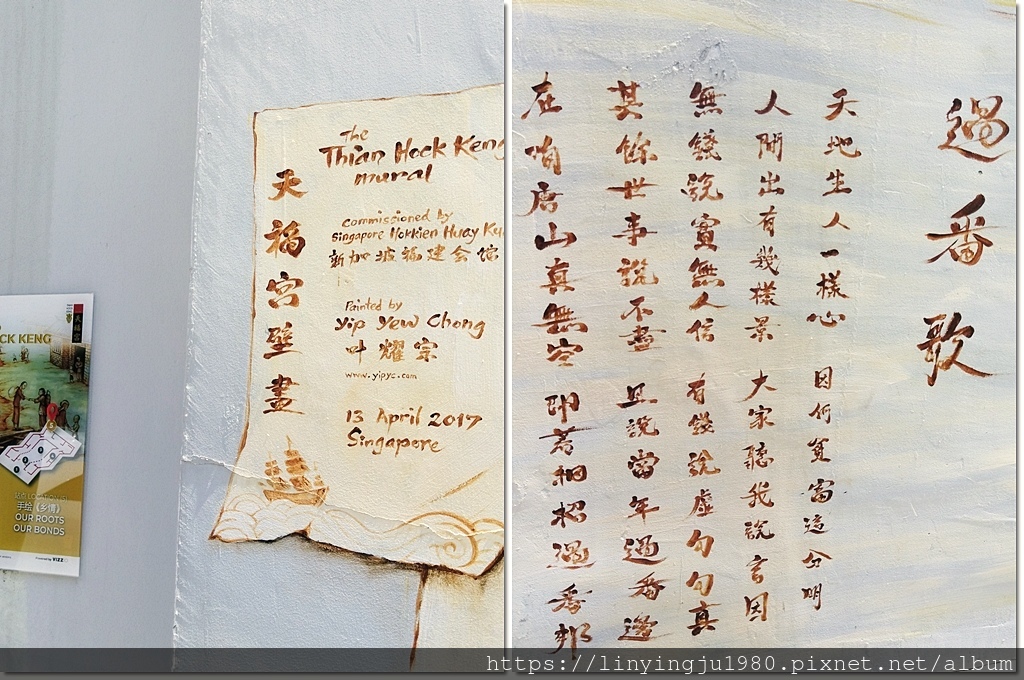 OCK KENG
手绘《乡情》
OUR ROOTS
OUR BONDS
天福宮壁畫
The
Thian Hock Keng
mural
Commissioned by
Singapore Hokkien Huay Ku
新加坡福建会馆
Painted by
Yip Yew Chong
叶耀宗
www.yipyc.com
13 April 2017
Singapore
過番歌
天地生人一樣心 因何貧富這分明
人間出有幾樣景 大家聽我說言因
無錢說實無人信 有錢說虛句句真
其餘世事說不盡 且說當年過番邊
在咱唐山真無空 即著相招過番邦
https://linyingju1980.pixnet.net/album